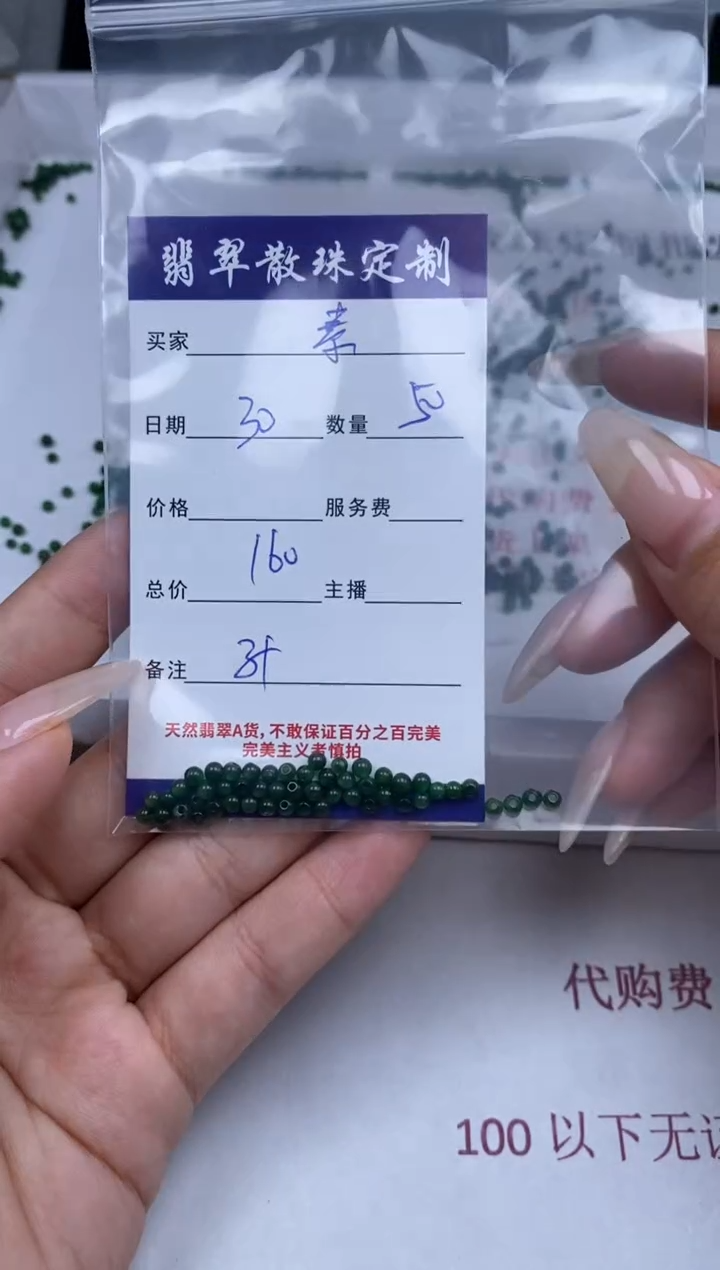 翡翠散珠定制
买家 素
日期 30 数量 50
价格 服务费
总价 160 主播
备注
天然翡翠A货,不敢保证百分之百完美
完美主义者慎拍
代购费
100 以下无